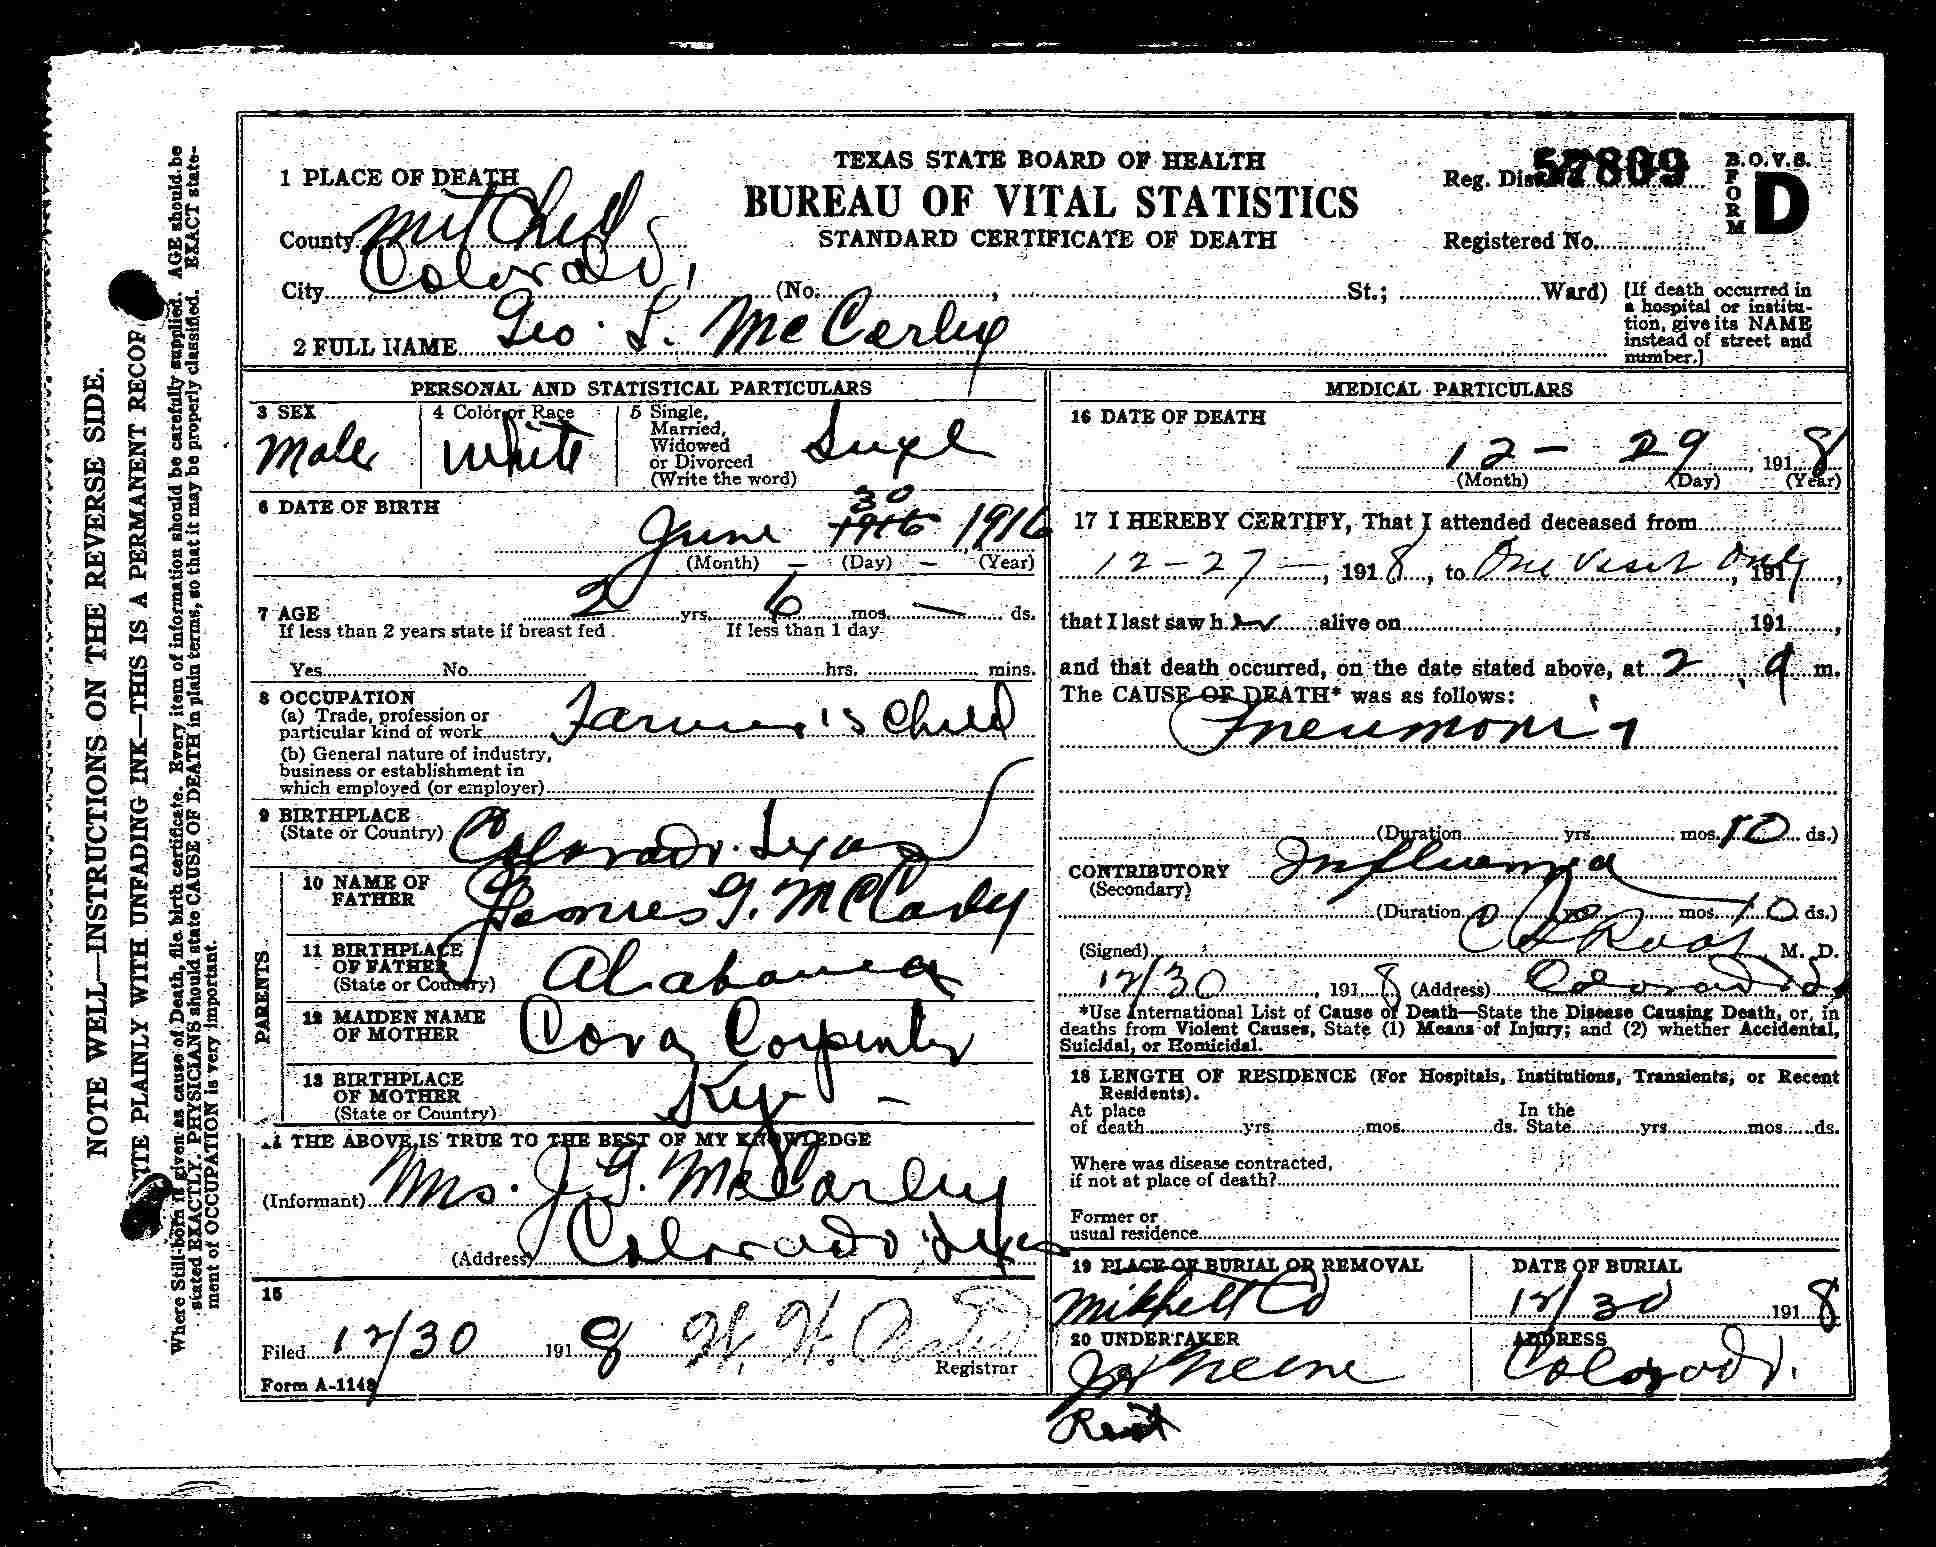 TEXAS STATE BOARD OF HEALTH
BUREAU OF VITAL STATISTICS
STANDARD CERTIFICATE OF DEATH
57809
Reg. Dis
Registered No.
B.O.V.S.
FORM
D
1 PLACE OF DEATH
County Mitchell
City Colorado, (No. , St.; Ward)
[If death occurred in a hospital or institution, give its NAME instead of street and number.]
2 FULL NAME Geo. L. McCarley
PERSONAL AND STATISTICAL PARTICULARS
3 SEX
Male
4 Color or Race
White
5 Single, Married, Widowed or Divorced (Write the word)
6 DATE OF BIRTH
June 30 1916
(Month) — (Day) — (Year)
7 AGE 2 yrs. 6 mos. — ds.
If less than 2 years state if breast fed If less than 1 day
Yes No hrs. mins.
8 OCCUPATION
(a) Trade, profession or
particular kind of work Farmer's Child
(b) General nature of industry,
business or establishment in
which employed (or employer)
9 BIRTHPLACE
(State or Country) Colorado. Texas
PARENTS
10 NAME OF FATHER James G. McCarley
11 BIRTHPLACE OF FATHER (State or Country) Alabama
12 MAIDEN NAME OF MOTHER Cora Carpenter
13 BIRTHPLACE OF MOTHER (State or Country) Ky —
THE ABOVE IS TRUE TO THE BEST OF MY KNOWLEDGE
(Informant) Mrs. J.G. McCarley
(Address) Colorado Texas
15
Filed 12/30 1918
Registrar
Form A-1148
MEDICAL PARTICULARS
16 DATE OF DEATH
12 — 29, 1918
(Month) (Day) (Year)
17 I HEREBY CERTIFY, That I attended deceased from
12-27-, 1918, to One Visit Only, 191 ,
that I last saw h alive on 191 ,
and that death occurred, on the date stated above, at 2 a m.
The CAUSE OF DEATH* was as follows:
Pneumonia
(Duration yrs. mos. 10 ds.)
CONTRIBUTORY (Secondary) Influenza
(Duration yrs. mos. 10 ds.)
(Signed) Root, M. D.
12/30, 1918 (Address) Colorado
*Use International List of Cause of Death—State the Disease Causing Death, or, in
deaths from Violent Causes, State (1) Means of Injury; and (2) whether Accidental,
Suicidal, or Homicidal.
18 LENGTH OF RESIDENCE (For Hospitals, Institutions, Transients, or Recent
Residents).
At place of death yrs. mos. ds. In the State yrs. mos. ds.
Where was disease contracted,
if not at place of death?
Former or
usual residence
19 PLACE OF BURIAL OR REMOVAL
Mitchell Co
DATE OF BURIAL
12/30 1918
20 UNDERTAKER
ADDRESS
Colorado.
NOTE WELL—INSTRUCTIONS ON THE REVERSE SIDE.
TE PLAINLY WITH UNFADING INK—THIS IS A PERMANENT RECOR
Where Still-born is given as cause of Death, file birth certificate. Every item of information should be carefully supplied. AGE should be
stated EXACTLY. PHYSICIANS should state CAUSE OF DEATH in plain terms, so that it may be properly classified. EXACT state-
ment of OCCUPATION is very important.